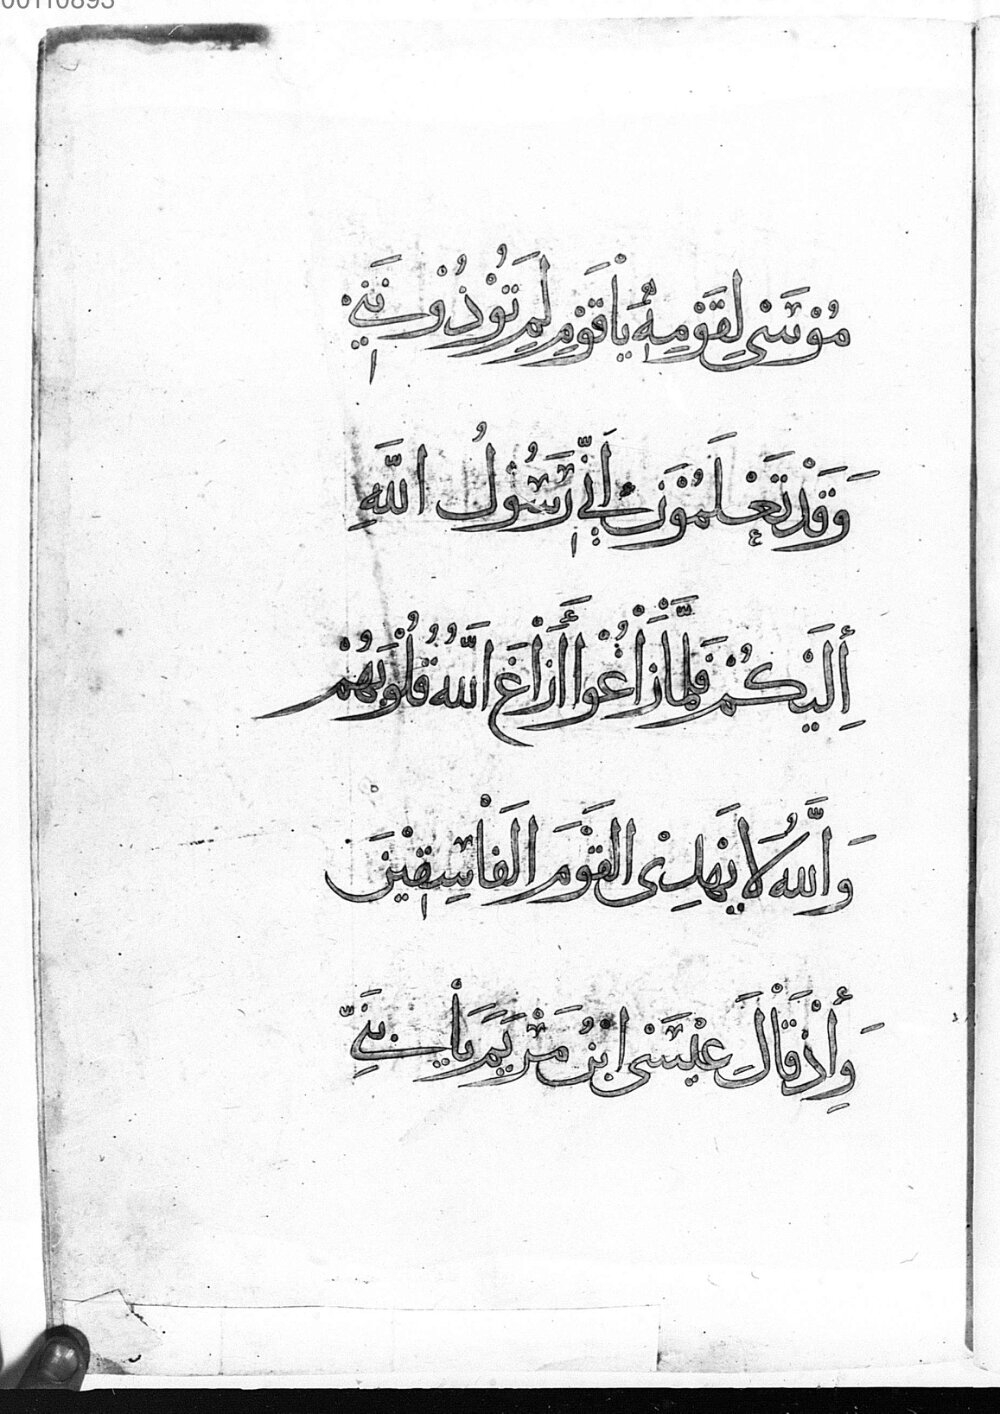 00110893
مُوْسَىٰ لِقَوْمِهٖ يَاقَوْمِ لِمَ تُؤْذُوْنَنِيْ
وَقَدْ تَعْلَمُوْنَ اَنِّيْ رَسُوْلُ اللَّهِ
إِلَيْكُمْ فَلَمَّا زَاغُوْا أَزَاغَ اللَّهُ قُلُوْبَهُمْ
وَاللَّهُ لَا يَهْدِى الْقَوْمَ الْفَاسِقِيْنَ
وَإِذْ قَالَ عِيْسَى ابْنُ مَرْيَمَ يَا بَنِيْ